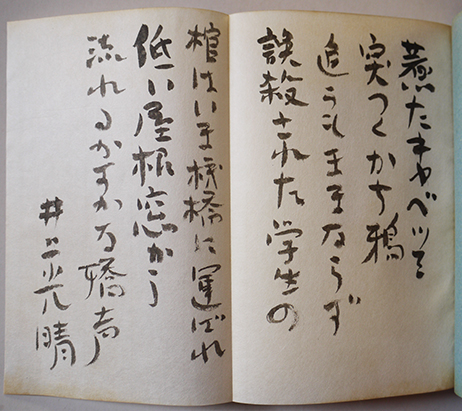 煮たキャベツを
突つくかち鴉
追うもままならず
誤殺された学生の
棺はいま桟橋に運ばれ
低い屋根窓から
流れるかすかな嬌声
井上光晴